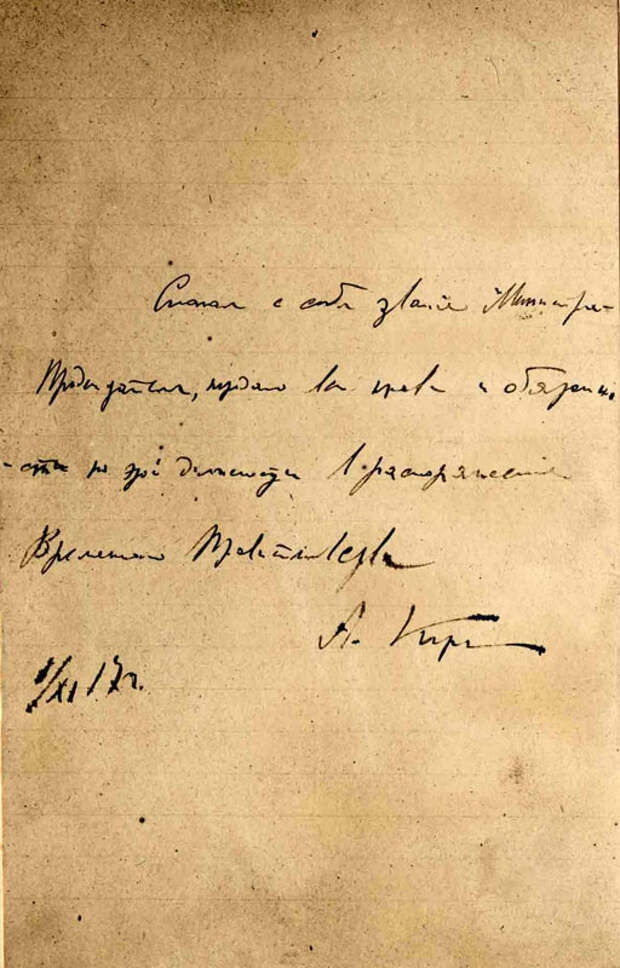 Слагая с себя звание Министра-
Председателя, передаю все права и обязанно
-сти по этой должности в распоряжение
Временного Правительства
А. Керенский
1/XI 17 г.